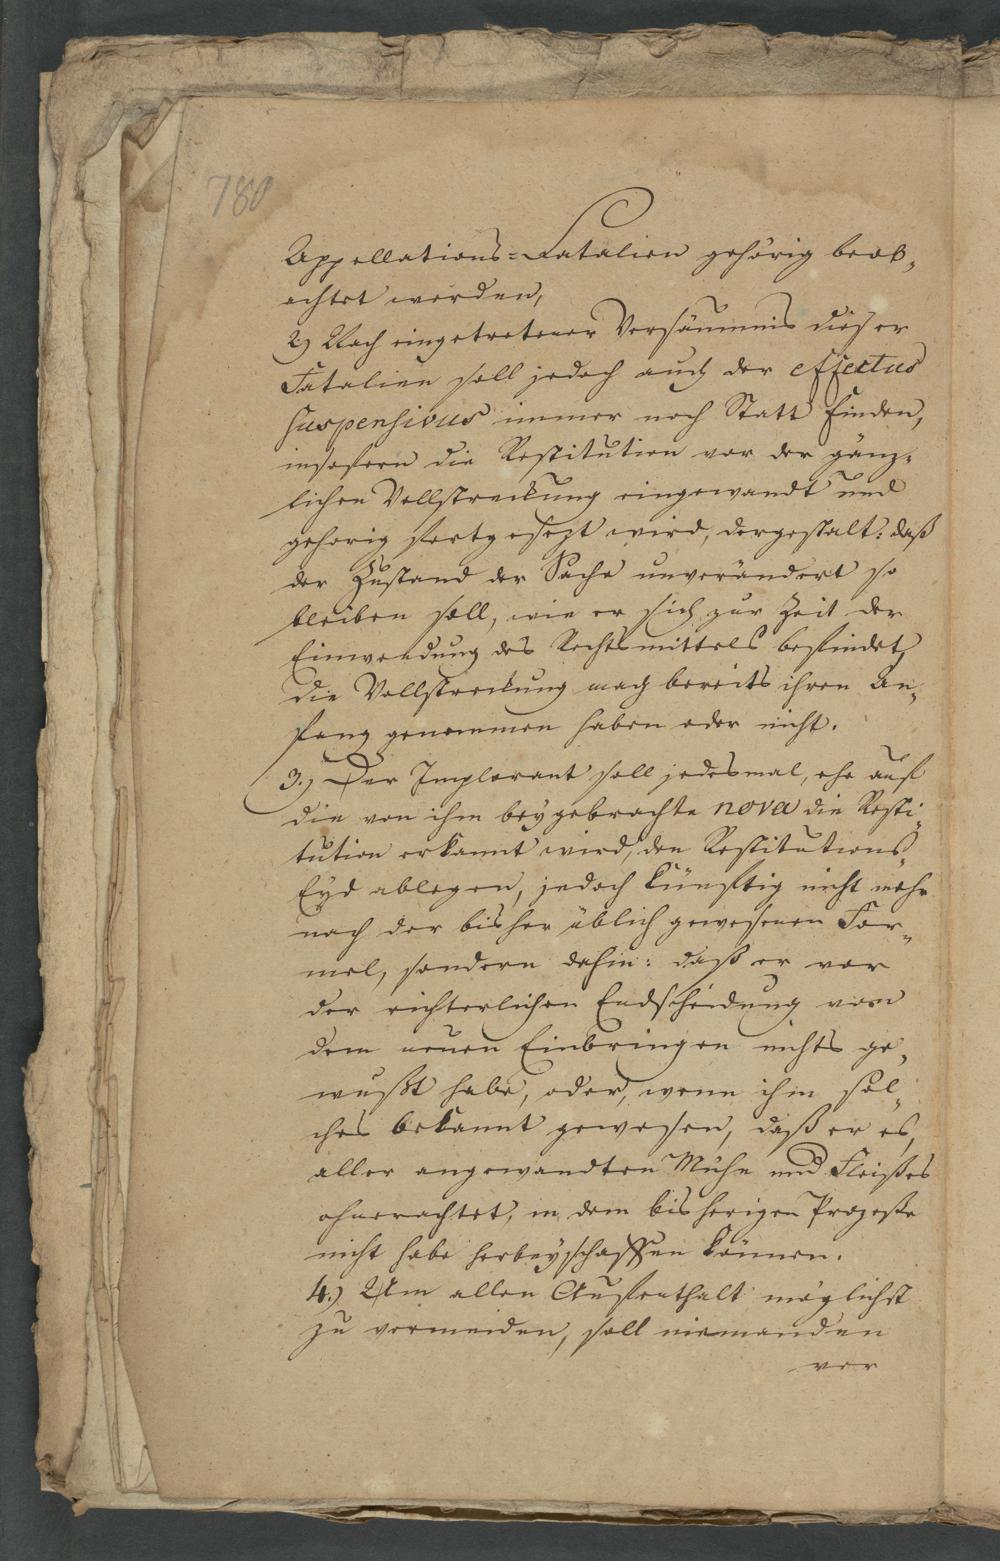 780
Appellations=Fatalien gehörig beob-
achtet werden,
2) Nach eingetretener Versäumnis dieser
Fatalien soll jedoch auch der effectus
suspensivus immer noch Statt finden,
insofern die Restitution vor der gänz-
lichen Vollstreckung eingewandt und
gehorig fortgesezt wird, dergestalt: daß
der Zustand der Sache unverändert so
bleiben soll, wie er sich zur Zeit der
Einwendung des Rechtsmittels befindet,
die Vollstreckung mag bereits ihren An-
fang genommen haben oder nicht.
3.) Der Implorant soll jedesmal, ehe auf
die von ihm beygebrachte nova die Resti-
tution erkannt wird, den Restitutions-
Eyd ablegen, jedoch künftig nicht mehr
nach der bisher üblich gewesenen For-
mel, sondern dahin: daß er vor
der richterlichen Endscheidung von
dem neuen Einbringen nichts ge-
wußt habe, oder, wenn ihm sol-
ches bekannt gewesen, daß er es,
aller angewandten Mühe und Fleißes
ohnerachtet, in dem bisherigen Prozeße
nicht habe herbeyschaffen können.
4.) Um allen Aufenthalt möglichst
zu vermeiden, soll niemanden
ver